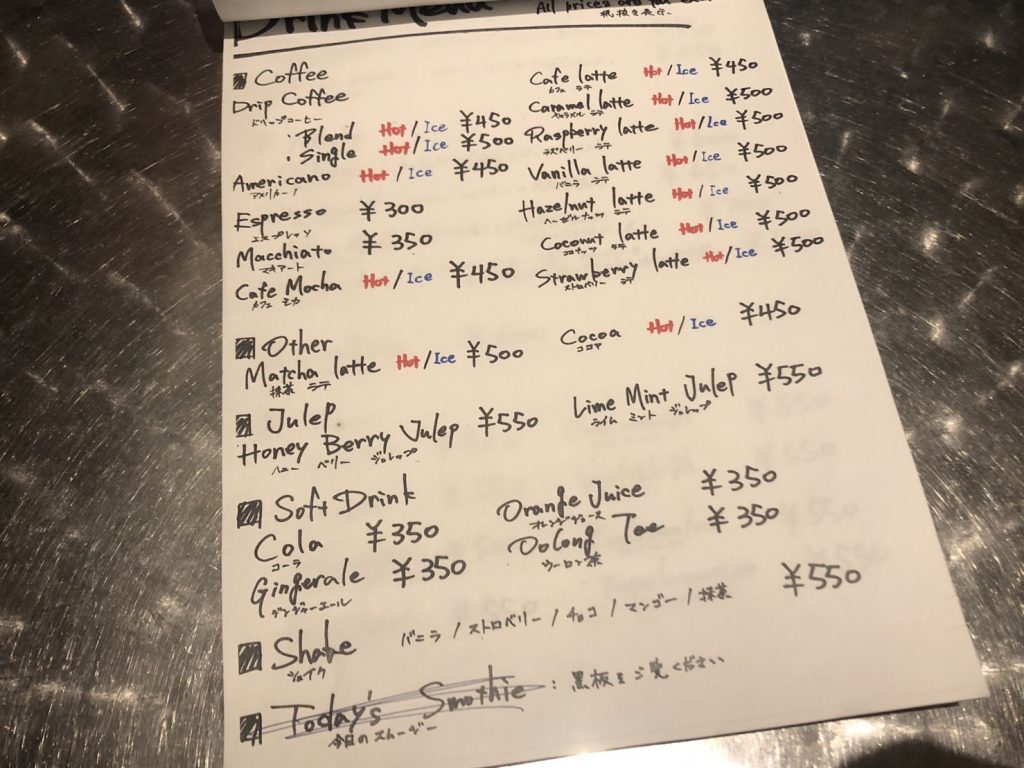 Drink Menu
税抜き表示
■ Coffee
Drip Coffee
ドリップコーヒー
・Blend Hot / Ice ¥450
・Single Hot / Ice ¥500
Americano Hot / Ice ¥450
アメリカーノ
Espresso ¥300
エスプレッソ
Macchiato ¥350
マキアート
Cafe Mocha Hot / Ice ¥450
カフェ モカ
Cafe latte Hot / Ice ¥450
カフェ ラテ
Caramel latte Hot / Ice ¥500
キャラメル ラテ
Raspberry latte Hot / Ice ¥500
ラズベリー ラテ
Vanilla latte Hot / Ice ¥500
バニラ ラテ
Hazelnut latte Hot / Ice ¥500
ヘーゼルナッツ ラテ
Coconut latte Hot / Ice ¥500
ココナッツ ラテ
Strawberry latte Hot / Ice ¥500
ストロベリー ラテ
■ Other
Matcha latte Hot / Ice ¥500
抹茶 ラテ
Cocoa Hot / Ice ¥450
ココア
■ Julep
Honey Berry Julep ¥550
ハニー ベリー ジュレップ
Lime Mint Julep ¥550
ライム ミント ジュレップ
■ Soft Drink
Cola ¥350
コーラ
Gingerale ¥350
ジンジャーエール
Orange Juice ¥350
オレンジジュース
Oolong Tae ¥350
ウーロン茶
■ Shake バニラ / ストロベリー / チョコ / マンゴー / 抹茶 ¥550
シェイク
■ Today's Smothie : 黒板をご覧ください
今日のスムージー